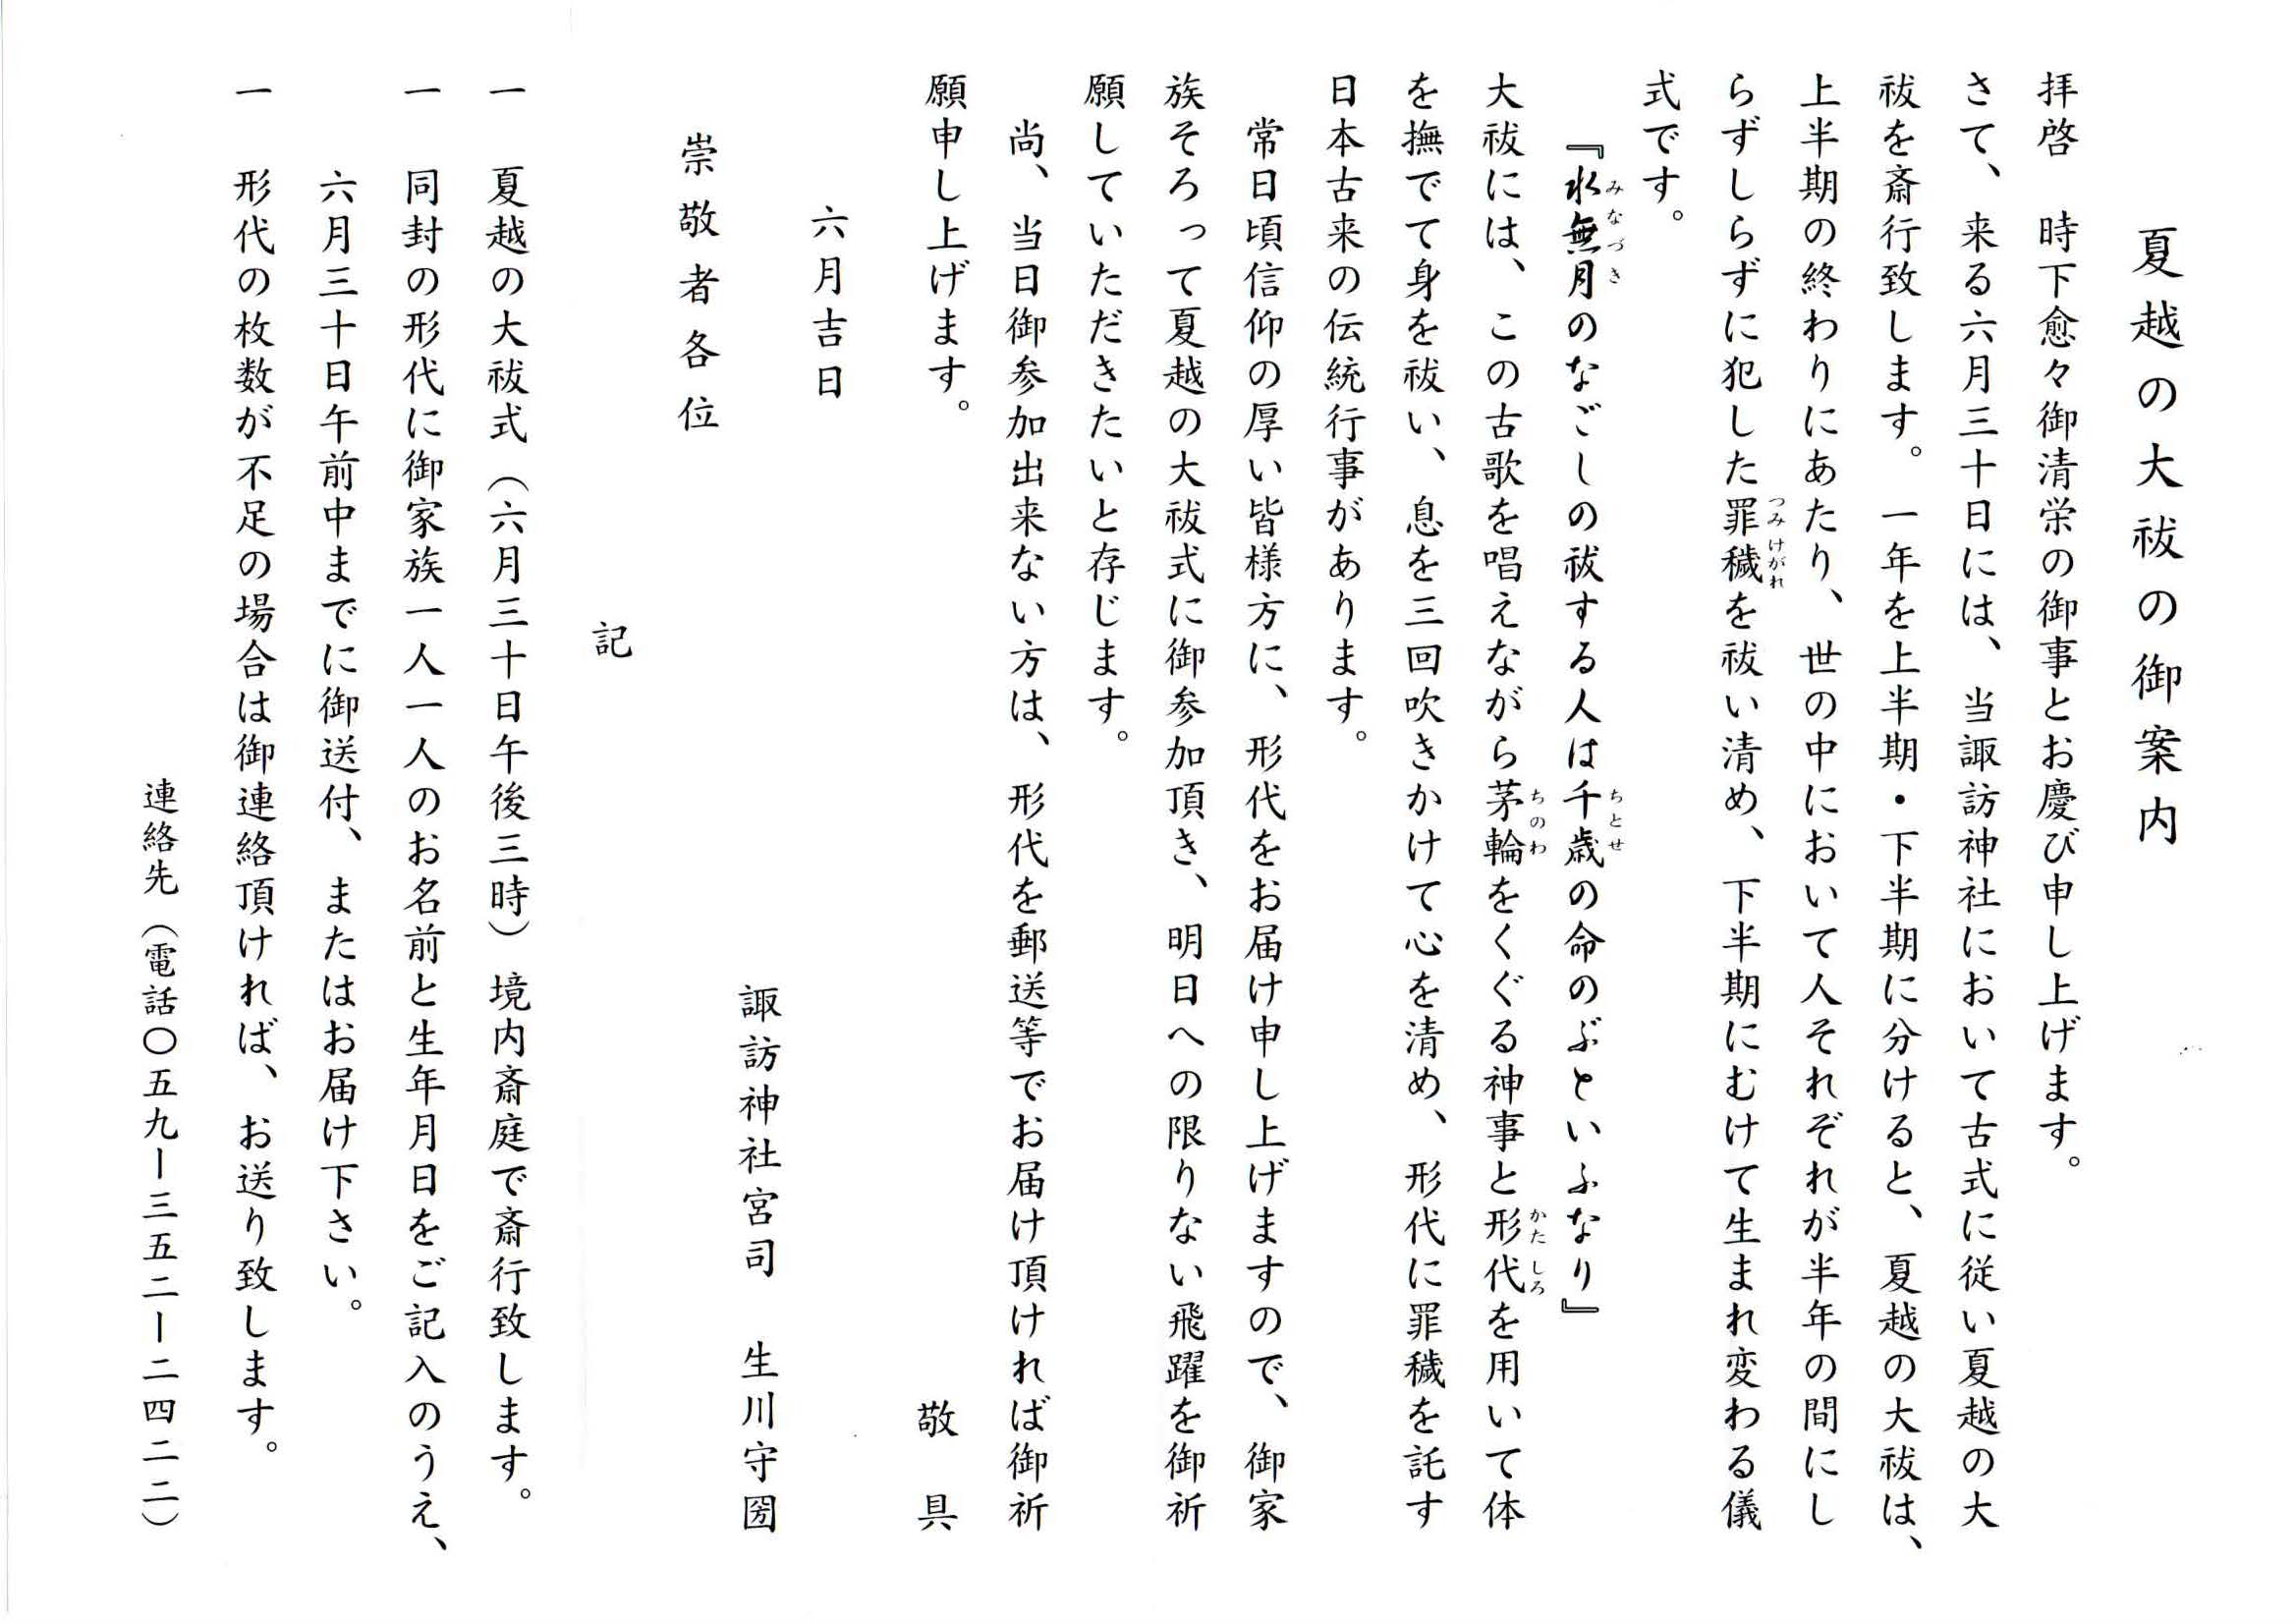 夏越の大祓の御案内
拝啓　時下愈々御清栄の御事とお慶び申し上げます。
さて、来る六月三十日には、当諏訪神社において古式に従い夏越の大
祓を斎行致します。一年を上半期・下半期に分けると、夏越の大祓は、
上半期の終わりにあたり、世の中において人それぞれが半年の間にし
らずしらずに犯した罪穢を祓い清め、下半期にむけて生まれ変わる儀
つみけがれ
式です。
『水無月のなごしの祓する人は千歳の命のぶといふなり』
みなづき
ちとせ
大祓には、この古歌を唱えながら茅輪をくぐる神事と形代を用いて体
ちのわ
かたしろ
を撫でて身を祓い、息を三回吹きかけて心を清め、形代に罪穢を託す
日本古来の伝統行事があります。
常日頃信仰の厚い皆様方に、形代をお届け申し上げますので、御家
族そろって夏越の大祓式に御参加頂き、明日への限りない飛躍を御祈
願していただきたいと存じます。
尚、当日御参加出来ない方は、形代を郵送等でお届け頂ければ御祈
願申し上げます。
敬具
六月吉日
諏訪神社宮司　生川守圀
崇敬者各位
記
一　夏越の大祓式（六月三十日午後三時）境内斎庭で斎行致します。
一　同封の形代に御家族一人一人のお名前と生年月日をご記入のうえ、
六月三十日午前中までに御送付、またはお届け下さい。
一　形代の枚数が不足の場合は御連絡頂ければ、お送り致します。
連絡先（電話〇五九ー三五二ー二四二二）